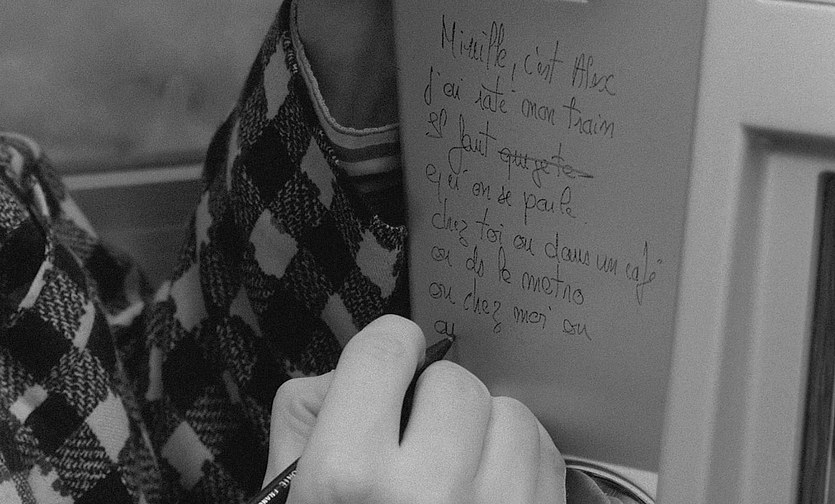 Mireille, c'est Alex
J'ai raté mon train
Il faut que je te
qu'on se parle.
chez toi ou dans un café
ou ds le metro
ou chez moi ou
ou